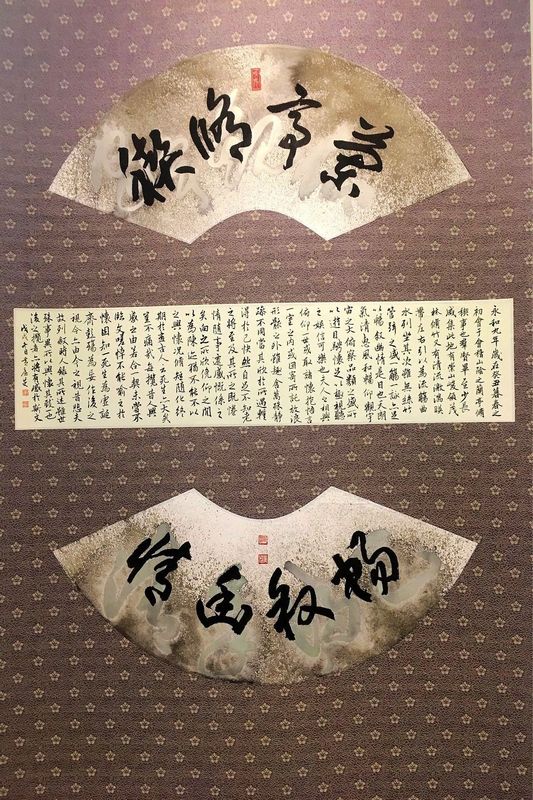 蘭亭脩禊
永和九年歲在癸丑暮春之
初會于會稽山陰之蘭亭脩
禊事也羣賢畢至少長
咸集此地有崇山峻領茂
林脩竹又有清流激湍暎
帶左右引以為流觴曲
水列坐其次雖無絲竹
管弦之盛一觴一詠亦足
以暢叙幽情是日也天朗
氣清惠風和暢仰觀宇
宙之大俯察品類之盛所
以遊目騁懷足以極視聽
之娛信可樂也夫人之相與
俯仰一世或取諸懷抱悟言
一室之內或因寄所託放浪
形骸之外雖趣舍萬殊靜
躁不同當其欣於所遇暫
得於己快然自足不知老
之將至及其所之既惓
情隨事遷感慨係之
矣向之所欣俛仰之間
以為陳迹猶不能不以
之興懷況脩短隨化終
期於盡古人云死生亦大矣
豈不痛哉每攬昔人興
感之由若合一契未嘗不
臨文嗟悼不能喻之於
懷固知一死生為虛誕
齊彭殤為妄作後之
視今亦由今之視昔悲夫
故列叙時人錄其所述雖世
殊事異所以興懷其致一也
後之攬者亦將有感於斯文
戊戌
暢叙幽情